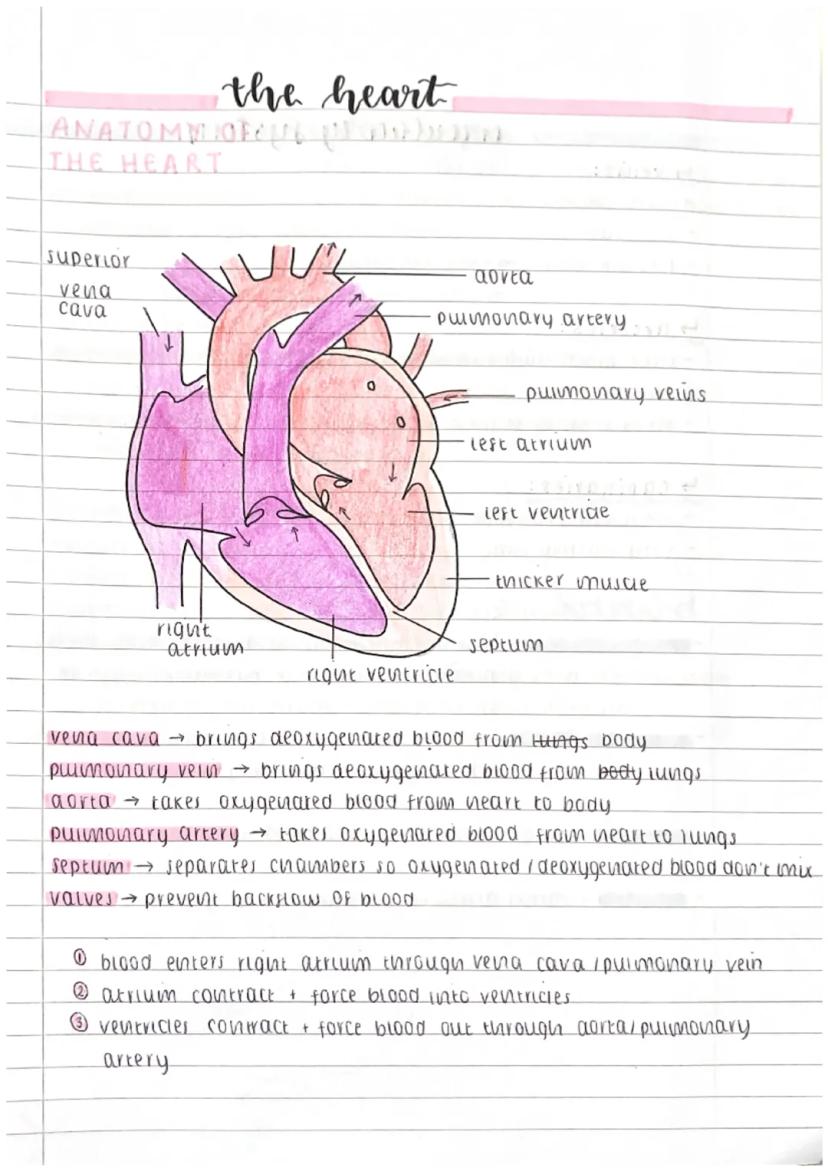 the heart
ANATOMY OF
THE HEART
superior
vena
cava
aorta
pulmonary artery
pulmonary veins
left atrium
left ventricle
thicker muscle
septum
right
atrium
right ventricle
vena cava → brings deoxygenated blood from lungs body
pulmonary vein → brings deoxygenated blood from body lungs
aorta → takes oxygenated blood from heart to body
pulmonary artery → takes oxygenated blood from heart to lungs
septum → separates chambers so oxygenated / deoxygenated blood don't mix
valves → prevent backflow of blood
① blood enters right atrium through vena cava / pulmonary vein
② atrium contract + force blood into ventricles
③ ventricles contract + force blood out through aorta / pulmonary
artery